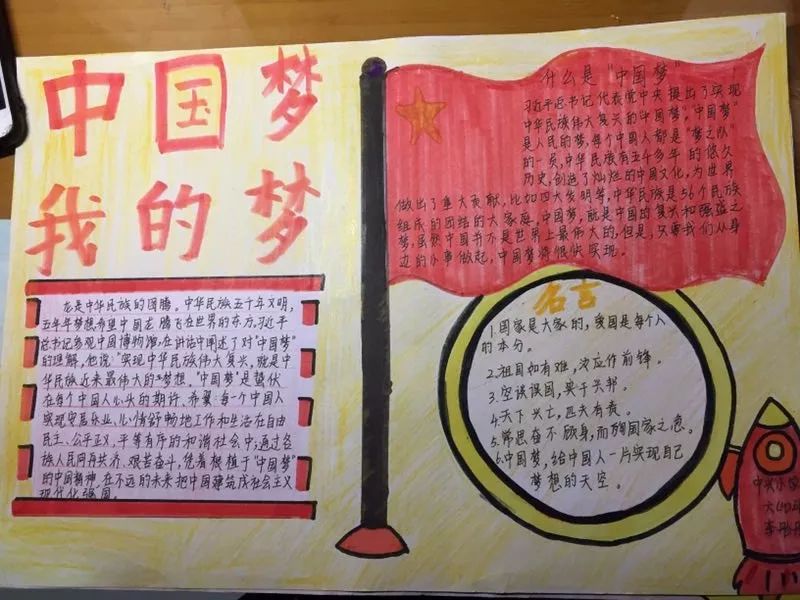 中国梦
我的梦
龙是中华民族的图腾。中华民族五千年文明,
五千年梦想希望中国龙腾飞在世界的东方。习近平
总书记参观中国博物馆,在讲话中阐述了对“中国梦”
的理解,他说:“实现中华民族伟大复兴,就是中
华民族近来最伟大的梦想。”中国梦”是蛰伏
在每个中国人心头的期许、希冀:每一个中国人
实现安居乐业、心情舒畅地工作和生活在自由
民主、公平正义、平等有序的和谐社会中;通过各
族人民同舟共济、艰苦奋斗,凭着根植于“中国梦”
的中国精神,在不远的未来把中国建筑成社会主义
现代化强国。
什么是“中国梦”
习近平总书记代表党中央提出了实现
中华民族伟大复兴的“中国梦”,“中国梦”
是人民的梦,每个中国人都是“梦之队”
的一员,中华民族有五千多年的悠久
历史,创造了灿烂的中国文化,为世界
做出了重大贡献,比如四大发明等,中华民族是56个民族
组成的团结的大家庭。中国梦,就是中国的复兴和强盛之
梦,虽然中国并不是世界上最伟大的,但是,只要我们从身
边的小事做起,中国梦将很快实现。
名言
1.国家是大家的,爱国是每个人
的本分。
2.祖国如有难,汝应作前锋。
3.空谈误国,实干兴邦。
4.天下兴亡,匹夫有责。
5.常思奋不顾身,而殉国家之急。
6.中国梦,给中国人一片实现自己
梦想的天空。
中兴小学